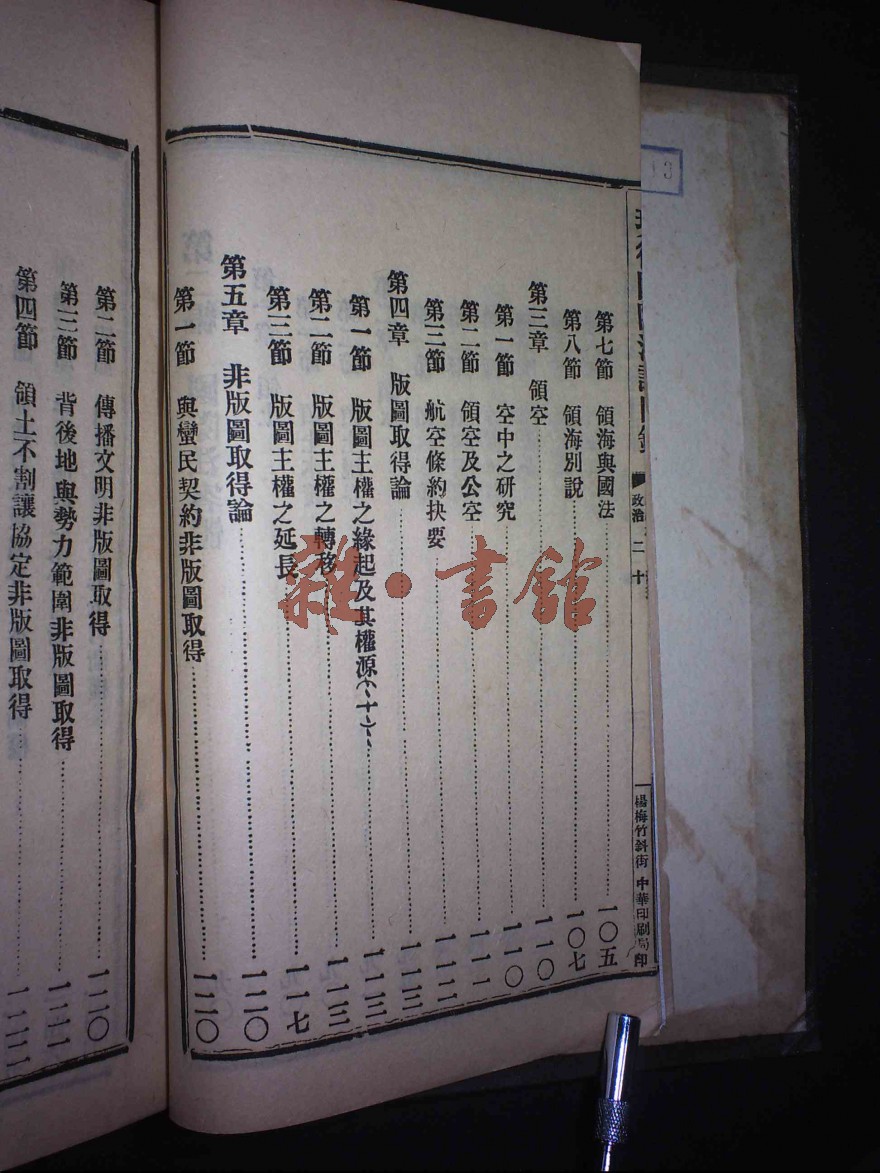 政治 二 十
楊梅竹斜街 中華印刷局印
第七節 領海與國法……一〇五
第八節 領海別說……一〇七
第三章 領空……一一〇
第一節 空中之研究……一一〇
第二節 領空及公空……一一一
第三節 航空條約抉要……一一二
第四章 版圖取得論……一一三
第一節 版圖主權之緣起及其權源……一一三
第二節 版圖主權之轉移……一一三
第三節 版圖主權之延長……一一七
第五章 非版圖取得論……一二〇
第一節 與蠻民契約非版圖取得……一二〇
第二節 傳播文明非版圖取得……一二〇
第三節 背後地與勢力範圍非版圖取得……一二一
第四節 領土不割讓協定非版圖取得……一二二
雜·書館